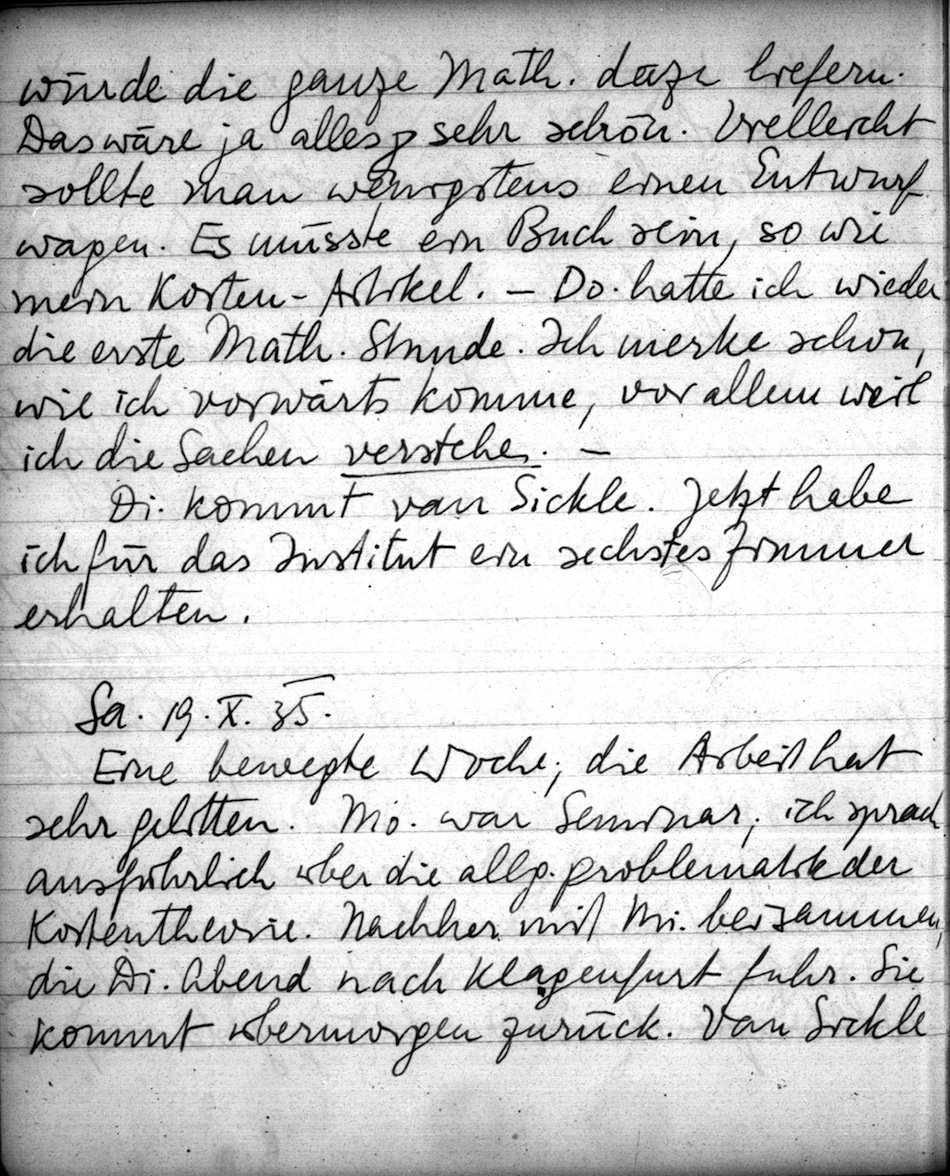 würde die ganze Math. dazu liefern.
Das wäre ja alles sehr schön. Vielleicht
sollte man wenigstens einen Entwurf
wagen. Es müsste ein Buch sein, so wie
mein Kosten-Artikel. – Do. hatte ich wieder
die erste Math. Stunde. Ich merke schon,
wie ich vorwärts komme, vor allem weil
ich die Sachen verstehe. –
Di. kommt van Sickle. Jetzt habe
ich für das Institut ein sechstes Zimmer
erhalten.
Sa. 19.X.35.
Eine bewegte Woche; die Arbeit hat
sehr gelitten. Mo. war Seminar; ich sprach
ausführlich über die allg. Problematik der
Kostentheorie. Nachher mit Mi. beisammen,
die Di. Abend nach Klagenfurt fuhr. Sie
kommt übermorgen zurück. Van Sickle